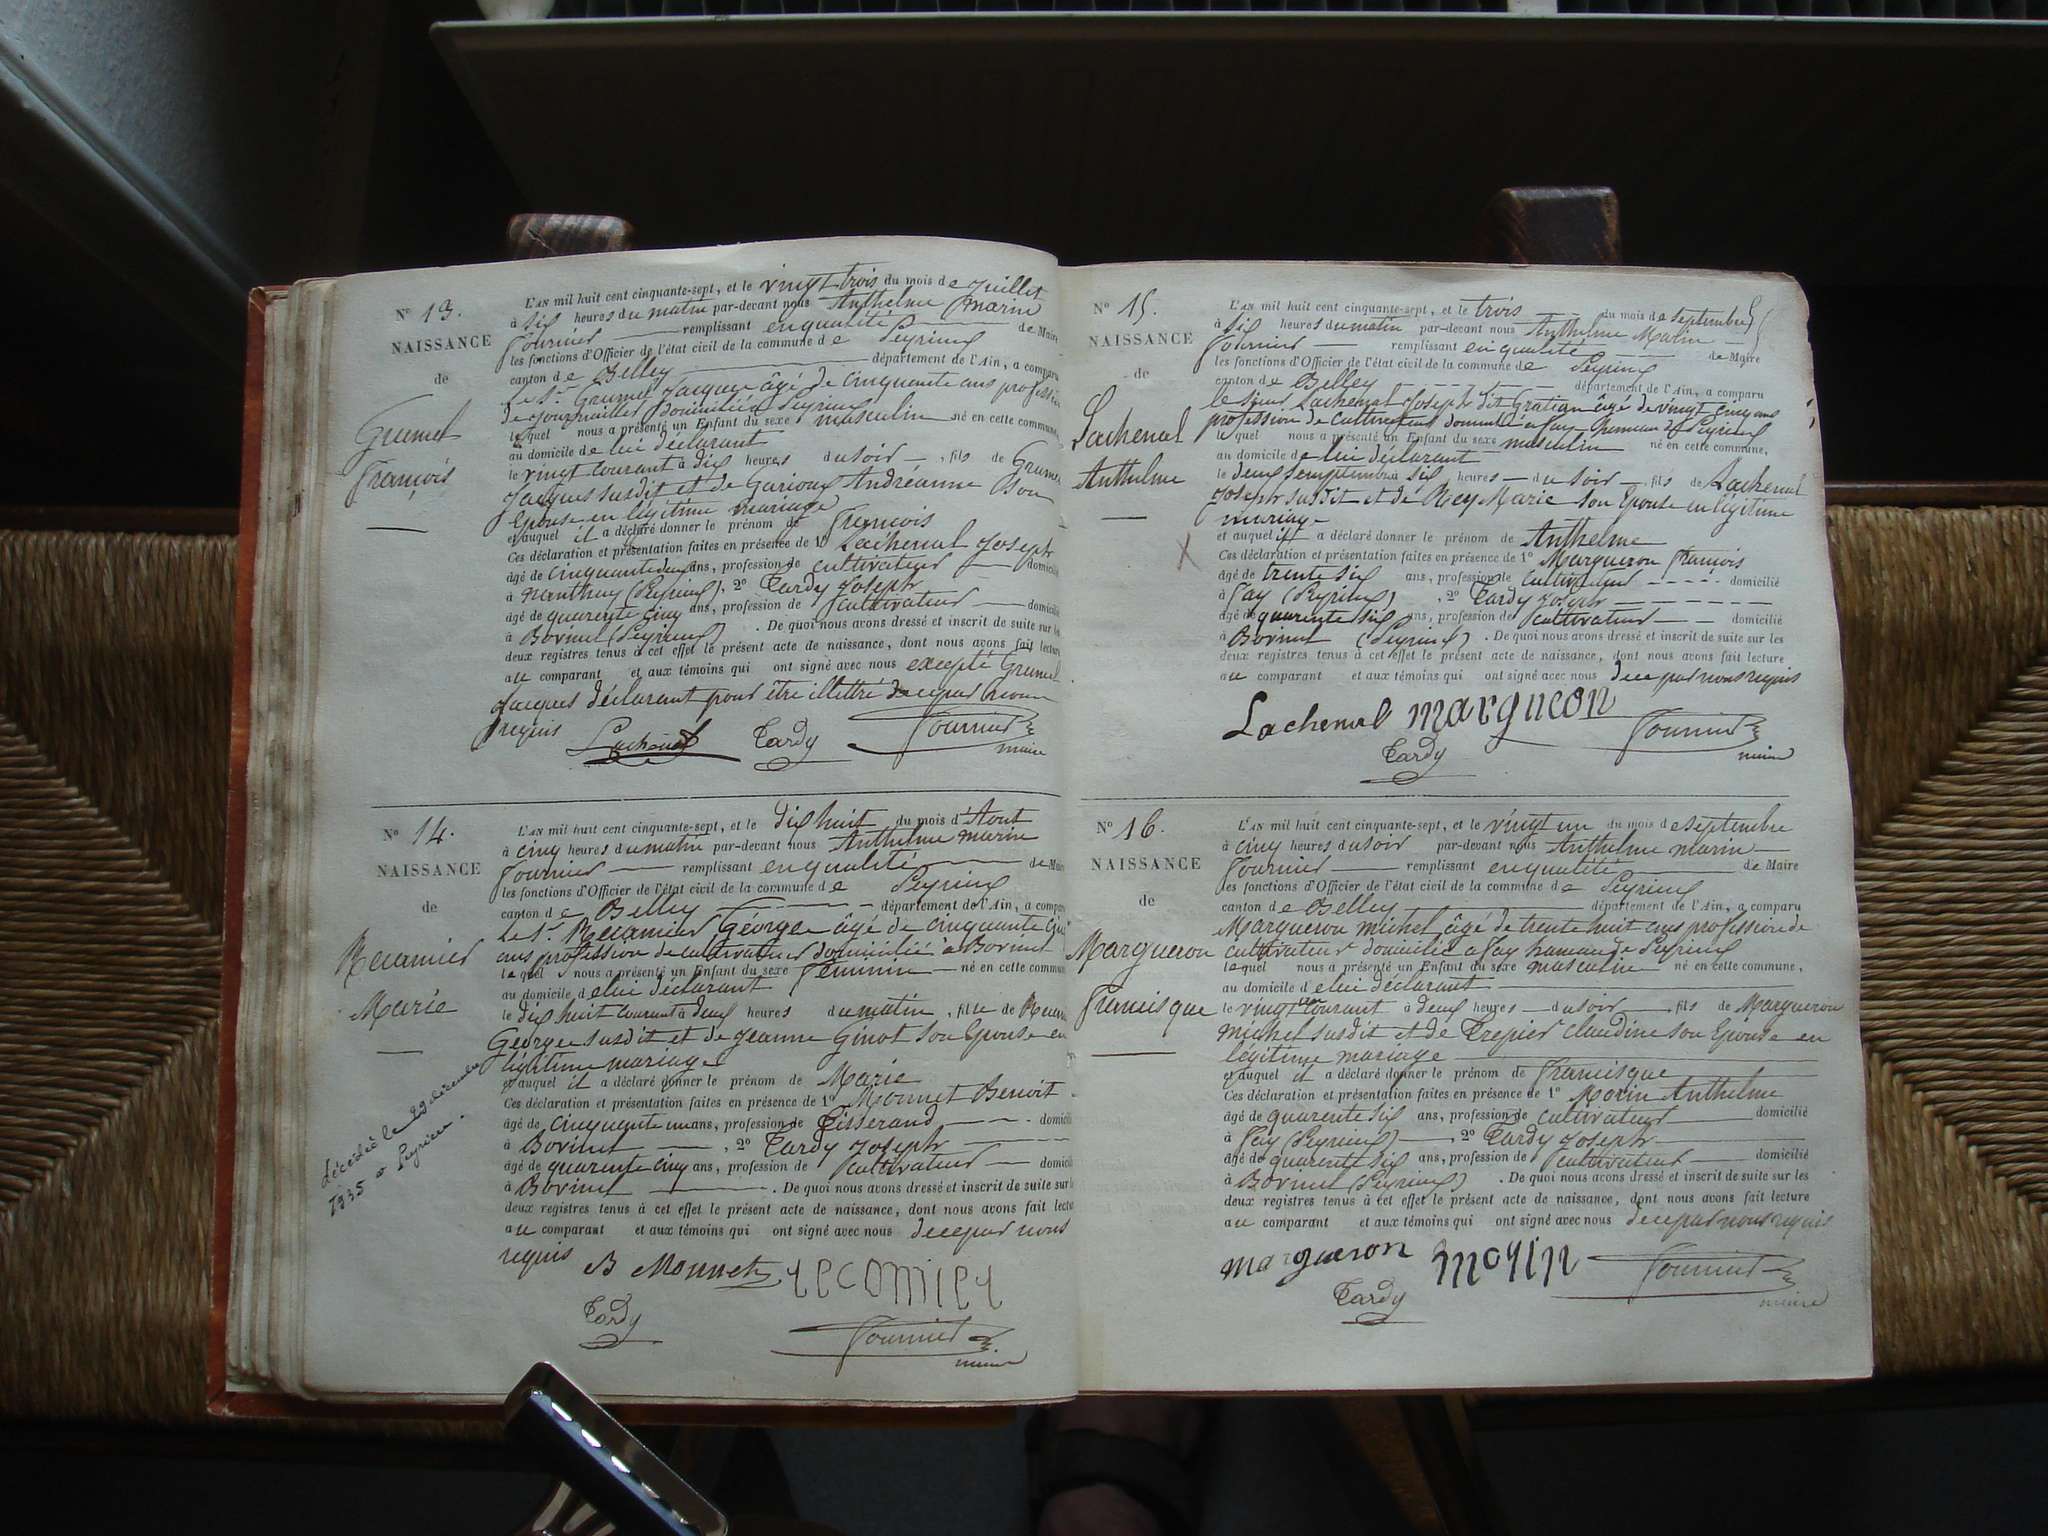 N° 13.
NAISSANCE
de
Grumel
François
L'AN mil huit cent cinquante-sept, et le vingt trois du mois de Juillet
à six heures du matin par-devant nous Anthelme Marin
Fournier remplissant en qualité de Maire
les fonctions d'Officier de l'état civil de la commune de Peyrieu
canton de Belley département de l'Ain, a comparu
le Sr Grumel Jacques âgé de cinquante ans profession
de journailler domicilié à Peyrieu
lequel nous a présenté un Enfant du sexe masculin né en cette commune,
au domicile de lui déclarant
le vingt courant à dix heures du soir, fils de Grumel
Jacques susdit et de Andréanne son
Epouse en légitime mariage
et auquel il a déclaré donner le prénom de François
Ces déclaration et présentation faites en présence de 1° Lachenal Joseph
âgé de cinquante deux ans, profession de cultivateur domicilié
à Nanthuy (Peyrieu), 2° Tardy Joseph
âgé de quarente cinq ans, profession de cultivateur domicilié
à Bovinet (Peyrieu). De quoi nous avons dressé et inscrit de suite sur les
deux registres tenus à cet effet le présent acte de naissance, dont nous avons fait lecture
au comparant et aux témoins qui ont signé avec nous excepté Grumel
Jacques déclarant pour être illettré de ce par nous
requis
Lachenal Tardy Fournier
maire
N° 14.
NAISSANCE
de
Recamier
Marie
Décédée le 29 décembre
1935 à Peyrieu.
L'AN mil huit cent cinquante-sept, et le dix huit du mois d'Aout
à cinq heures du matin par-devant nous Anthelme Marin
Fournier remplissant en qualité de Maire
les fonctions d'Officier de l'état civil de la commune de Peyrieu
canton de Belley département de l'Ain, a comparu
le Sr Recamier Géorge âgé de cinquante cinq
ans profession de cultivateur domicilié à Bovinet
lequel nous a présenté un Enfant du sexe féminin né en cette commune
au domicile de lui déclarant
le dix huit courant à deux heures du matin, fille de
Géorge susdit et de Jeanne Ginot son Epouse en
légitime mariage
et auquel il a déclaré donner le prénom de Marie
Ces déclaration et présentation faites en présence de 1° Monnet Benoit
âgé de cinquante un ans, profession de Tisserand domicilié
à Bovinet, 2° Tardy Joseph
âgé de quarente cinq ans, profession de cultivateur domicilié
à Bovinet. De quoi nous avons dressé et inscrit de suite sur les
deux registres tenus à cet effet le présent acte de naissance, dont nous avons fait lecture
au comparant et aux témoins qui ont signé avec nous de ce par nous
requis
B Monnet recamier
Tardy
Fournier
maire
N° 15.
NAISSANCE
de
Lachenal
Anthelme
X
L'AN mil huit cent cinquante-sept, et le trois du mois de septembre
à six heures du matin par-devant nous Anthelme Marin
Fournier remplissant en qualité de Maire
les fonctions d'Officier de l'état civil de la commune de Peyrieu
canton de Belley département de l'Ain, a comparu
le sieur Lachenal Joseph dit Gratian âgé de vingt cinq ans
profession de cultivateur domicilié à Fay hameau de Peyrieu
lequel nous a présenté un Enfant du sexe masculin né en cette commune,
au domicile de lui déclarant
le deux semptembre à six heures du soir, fils de Lachenal
Joseph susdit et de Rey Marie son Epouse en légitime
mariage
et auquel il a déclaré donner le prénom de Anthelme
Ces déclaration et présentation faites en présence de 1° Margueron François
âgé de trente six ans, profession de cultivateur domicilié
à Fay (Peyrieu), 2° Tardy Joseph
âgé de quarente six ans, profession de cultivateur domicilié
à Bovinet (Peyrieu). De quoi nous avons dressé et inscrit de suite sur les
deux registres tenus à cet effet le présent acte de naissance, dont nous avons fait lecture
au comparant et aux témoins qui ont signé avec nous de ce par nous requis
Lachenal margueron Fournier
Tardy maire
N° 16.
NAISSANCE
de
Margueron
Francisque
L'AN mil huit cent cinquante-sept, et le vingt un du mois de septembre
à cinq heures du soir par-devant nous Anthelme Marin
Fournier remplissant en qualité de Maire
les fonctions d'Officier de l'état civil de la commune de Peyrieu
canton de Belley département de l'Ain, a comparu
Margueron Michel âgé de trente huit ans profession de
cultivateur domicilié à Fay hameau de Peyrieu
lequel nous a présenté un Enfant du sexe masculin né en cette commune,
au domicile de lui déclarant
le vingt un courant à deux heures du soir, fils de Margueron
Michel susdit et de Trepier Claudine son Epouse en
légitime mariage
et auquel il a déclaré donner le prénom de Francisque
Ces déclaration et présentation faites en présence de 1° Morin Anthelme
âgé de quarente six ans, profession de cultivateur domicilié
à Fay (Peyrieu), 2° Tardy Joseph
âgé de quarente six ans, profession de cultivateur domicilié
à Bovinet (Peyrieu). De quoi nous avons dressé et inscrit de suite sur les
deux registres tenus à cet effet le présent acte de naissance, dont nous avons fait lecture
au comparant et aux témoins qui ont signé avec nous de ce par nous requis
margueron morin Fournier
Tardy maire